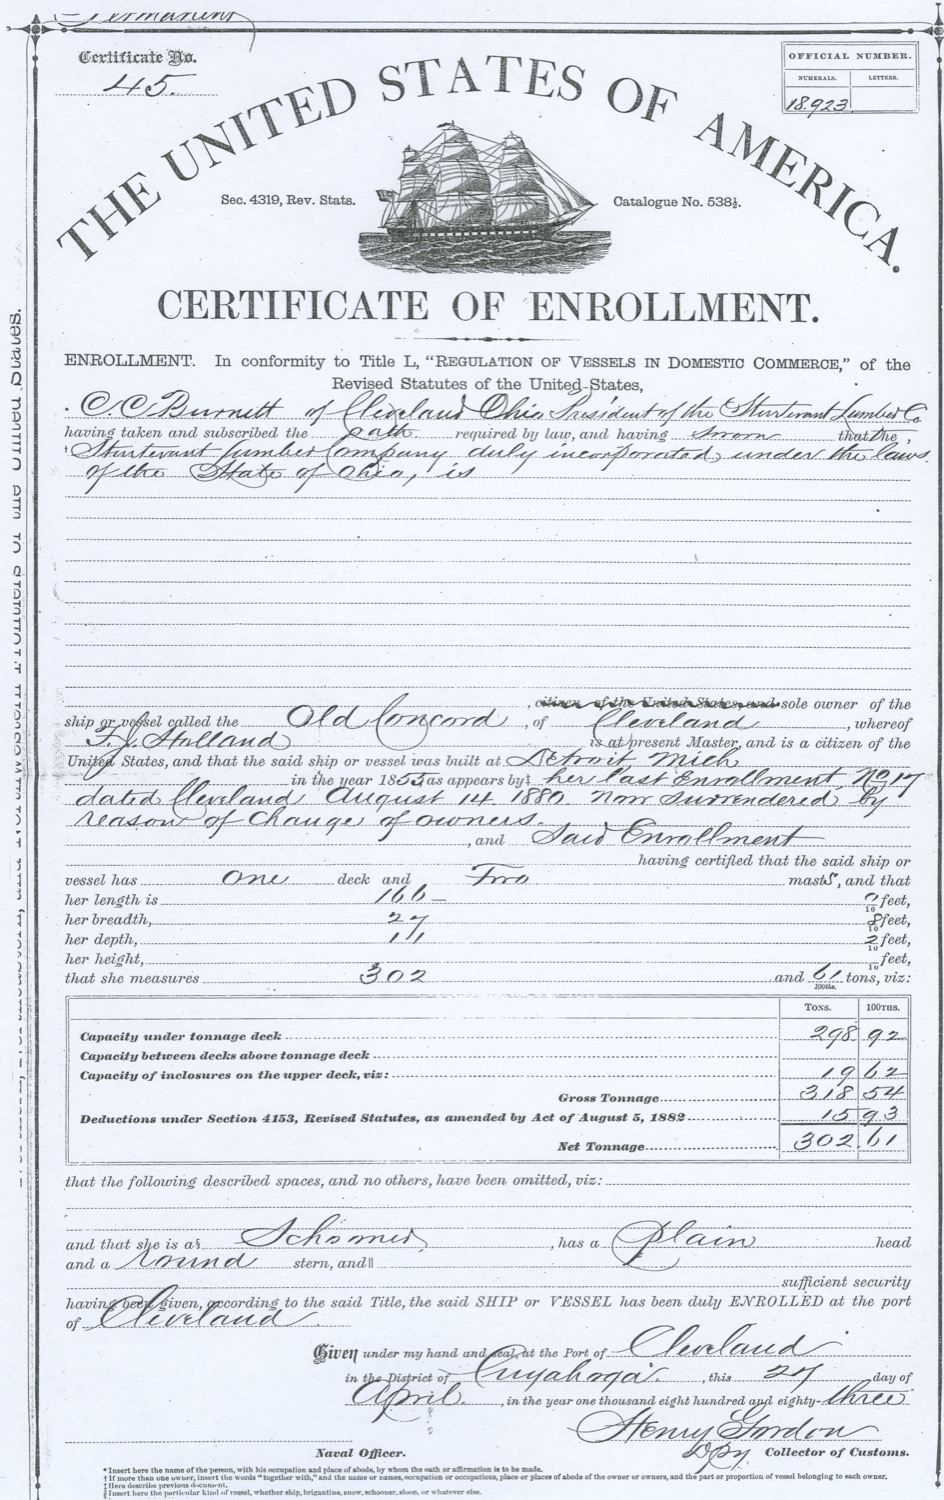 Permanent
Certificate No.
45.
OFFICIAL NUMBER.
NUMERALS. LETTERS.
18.923
THE UNITED STATES OF AMERICA.
Sec. 4319, Rev. Stats. Catalogue No. 538½.
CERTIFICATE OF ENROLLMENT.
ENROLLMENT. In conformity to Title L, "REGULATION OF VESSELS IN DOMESTIC COMMERCE," of the
Revised Statutes of the United States,
C. C. Burnett of Cleveland Ohio President of the Sturtevant Lumber Co
having taken and subscribed the oath required by law, and having sworn that the
Sturtevant Lumber Company duly incorporated under the laws
of the State of Ohio, is
citizen of the United States, and sole owner of the
ship or vessel called the Old Concord, of Cleveland, whereof
F. J. Holland is at present Master, and is a citizen of the
United States, and that the said ship or vessel was built at Detroit Mich
in the year 1853 as appears by‡ her last Enrollment, No 17
dated Cleveland August 14 1880 now surrendered by
reason of change of owners.
, and Said Enrollment
having certified that the said ship or
vessel has one deck and Two masts, and that
her length is 166 0/10 feet,
her breadth, 27 8/10 feet,
her depth, 11 2/10 feet,
her height, /10 feet,
that she measures 302 and 61/100ths. tons, viz:
TONS. 100THS.
Capacity under tonnage deck 298 92
Capacity between decks above tonnage deck
Capacity of inclosures on the upper deck, viz: 19 62
Gross Tonnage 318 54
Deductions under Section 4153, Revised Statutes, as amended by Act of August 5, 1882 15 93
Net Tonnage 302.61
that the following described spaces, and no others, have been omitted, viz:
and that she is a§ Schooner, has a Plain head
and a round stern, and‖
sufficient security
having been given, according to the said Title, the said SHIP or VESSEL has been duly ENROLLED at the port
of Cleveland
Given under my hand and seal, at the Port of Cleveland
in the District of Cuyahoga, this 27 day of
April, in the year one thousand eight hundred and eighty-three
Henry Gordon
Naval Officer. Dpy Collector of Customs.
* Insert here the name of the person, with his occupation and place of abode, by whom the oath or affirmation is to be made.
† If more than one owner, insert the words "together with," and the name or names, occupation or occupations, place or places of abode of the owner or owners, and the part or proportion of vessel belonging to each owner.
‡ Here describe previous document.
§ Insert here the particular kind of vessel, whether ship, brigantine, snow, schooner, sloop, or whatever else.